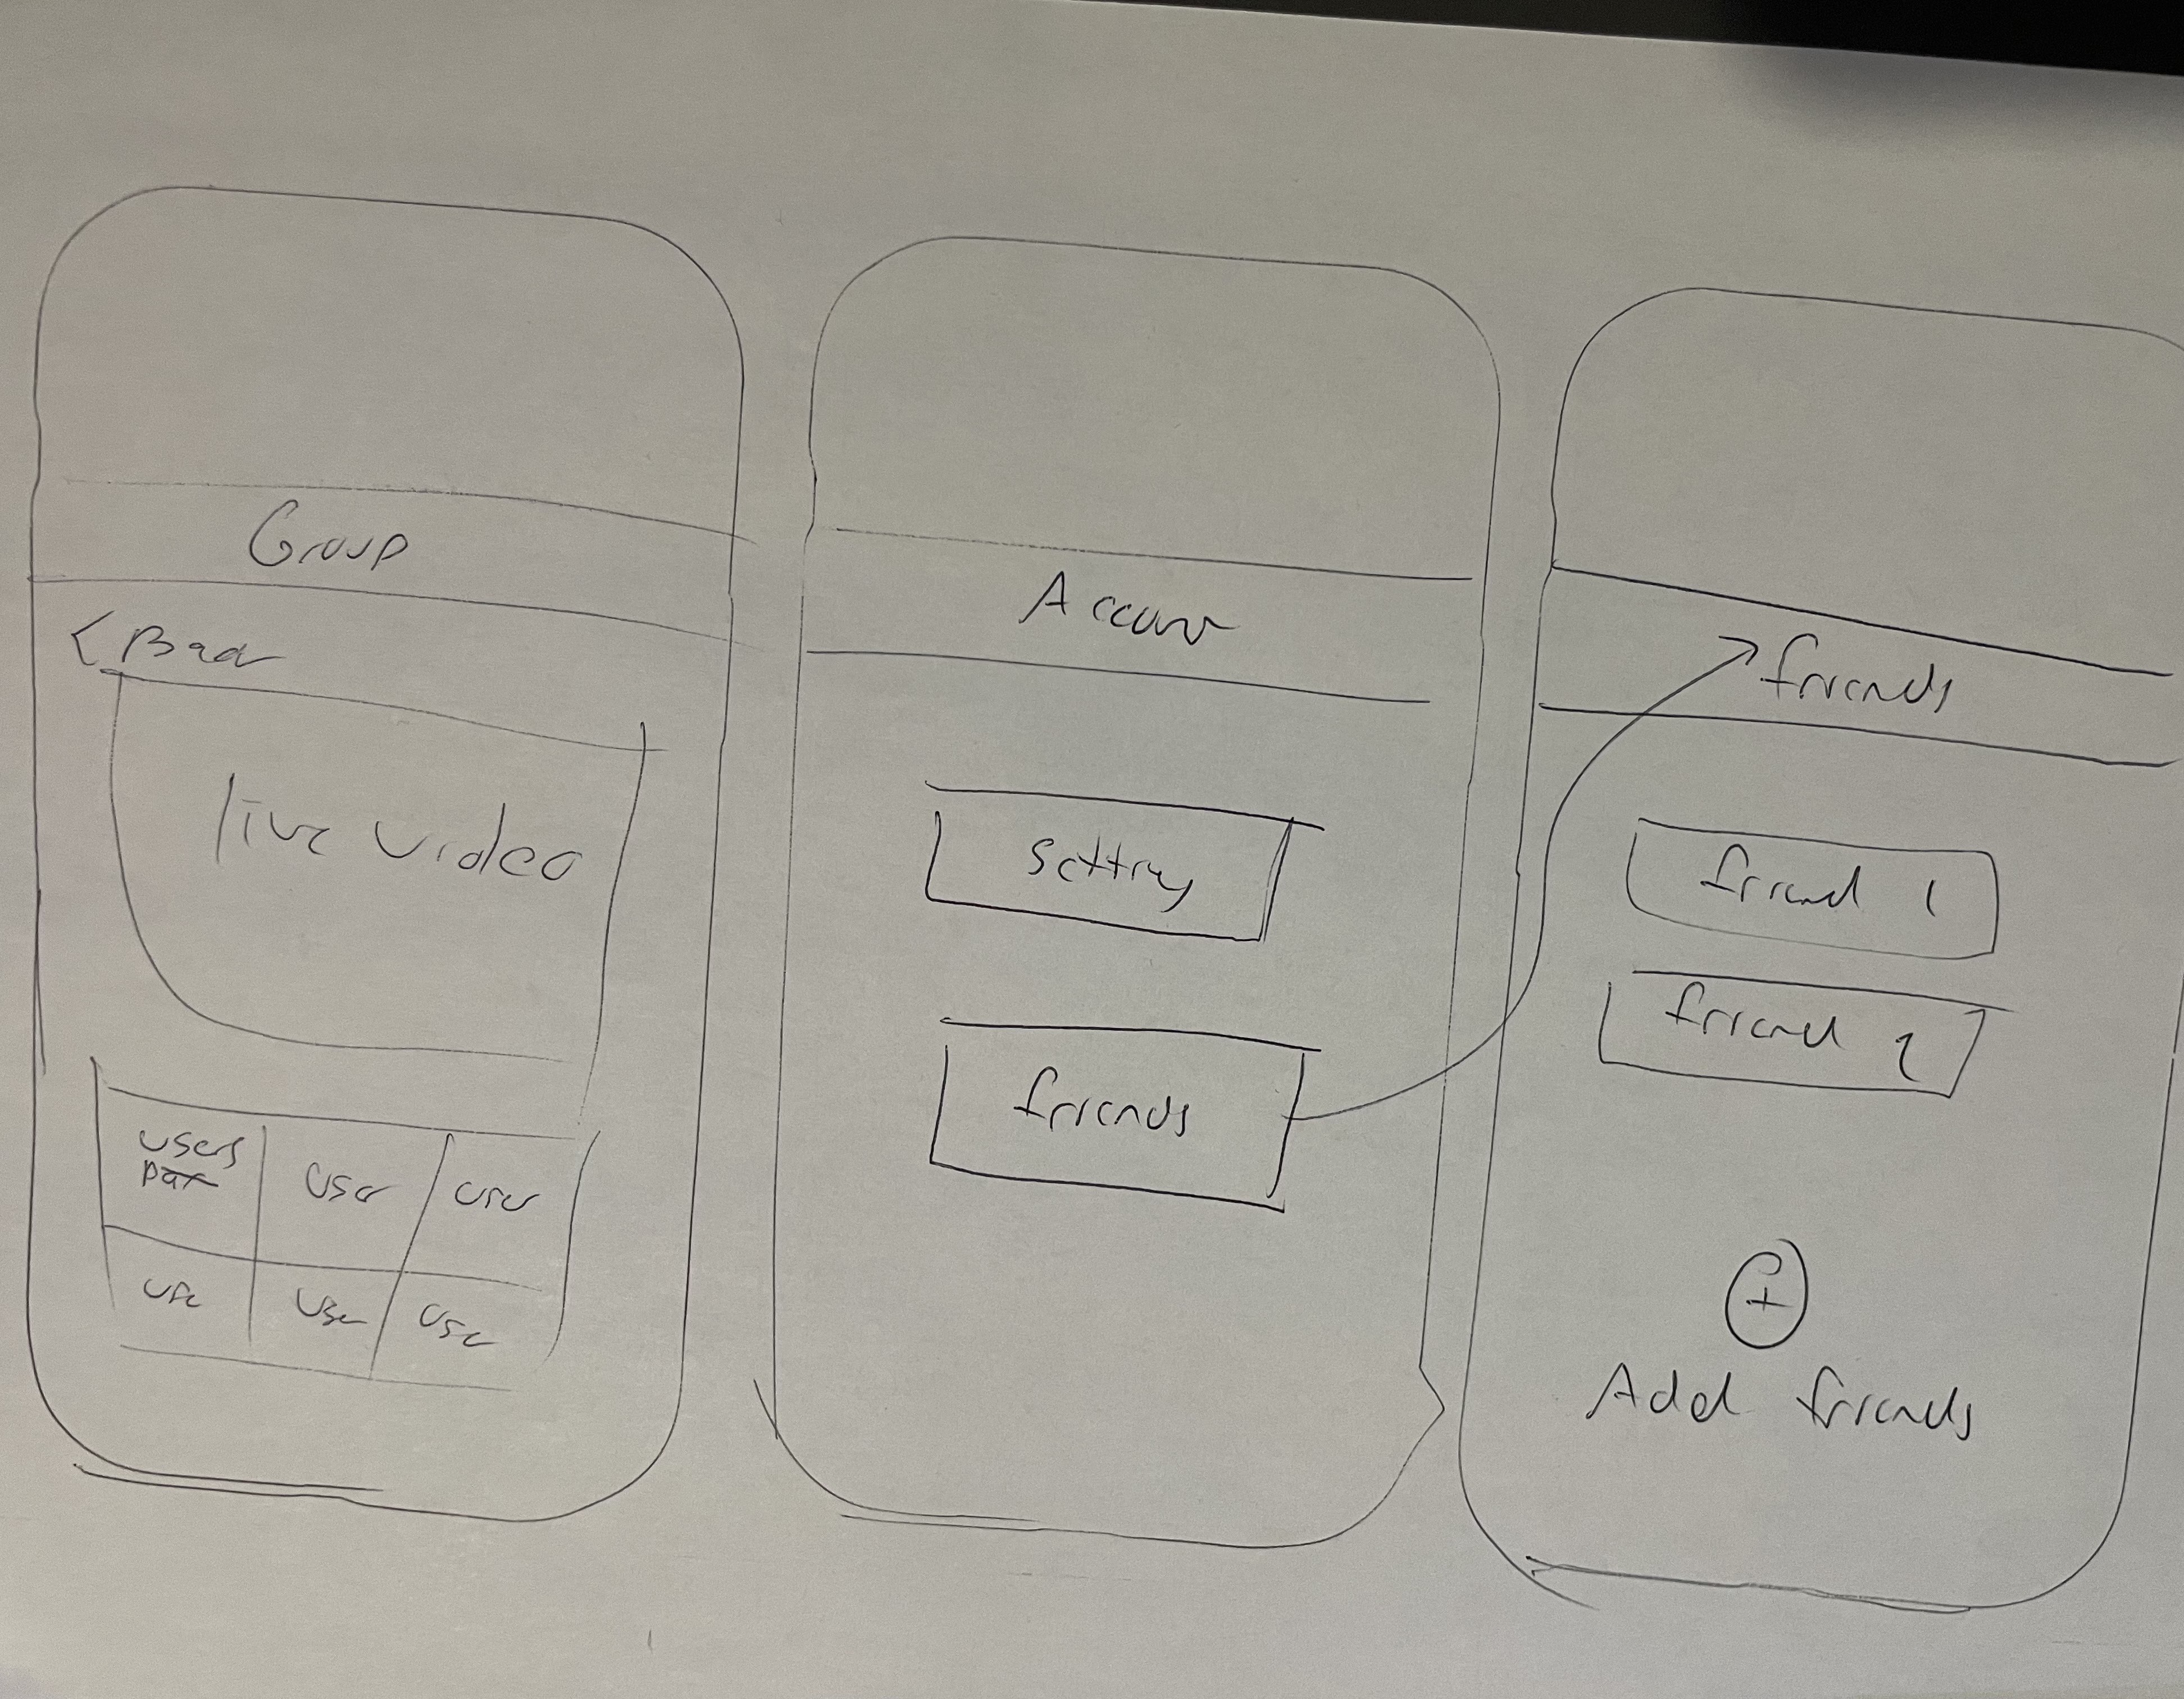 Group
< Back
live video
users
user
user
user
user
user
Account
Setting
friends
friends
friend 1
friend 2
+
Add friends